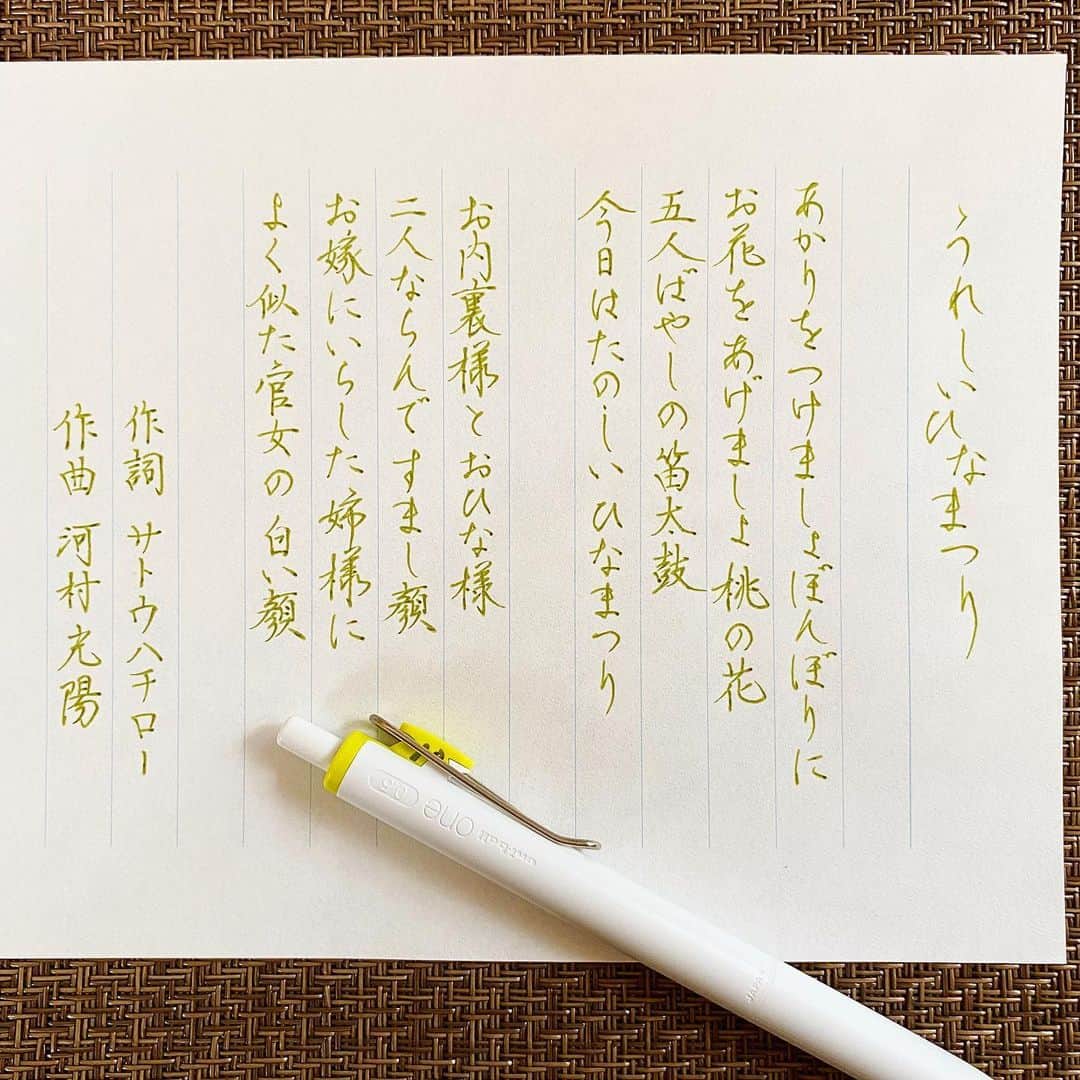 うれしいひなまつり
あかりをつけましょぼんぼりに
お花をあげましょ桃の花
五人ばやしの笛太鼓
今日はたのしいひなまつり
お内裏様とおひな様
二人ならんですまし顔
お嫁にいらした姉様に
よく似た官女の白い顔
作詞 サトウハチロー
作曲 河村光陽
uni-ball one 0.5
JAPAN